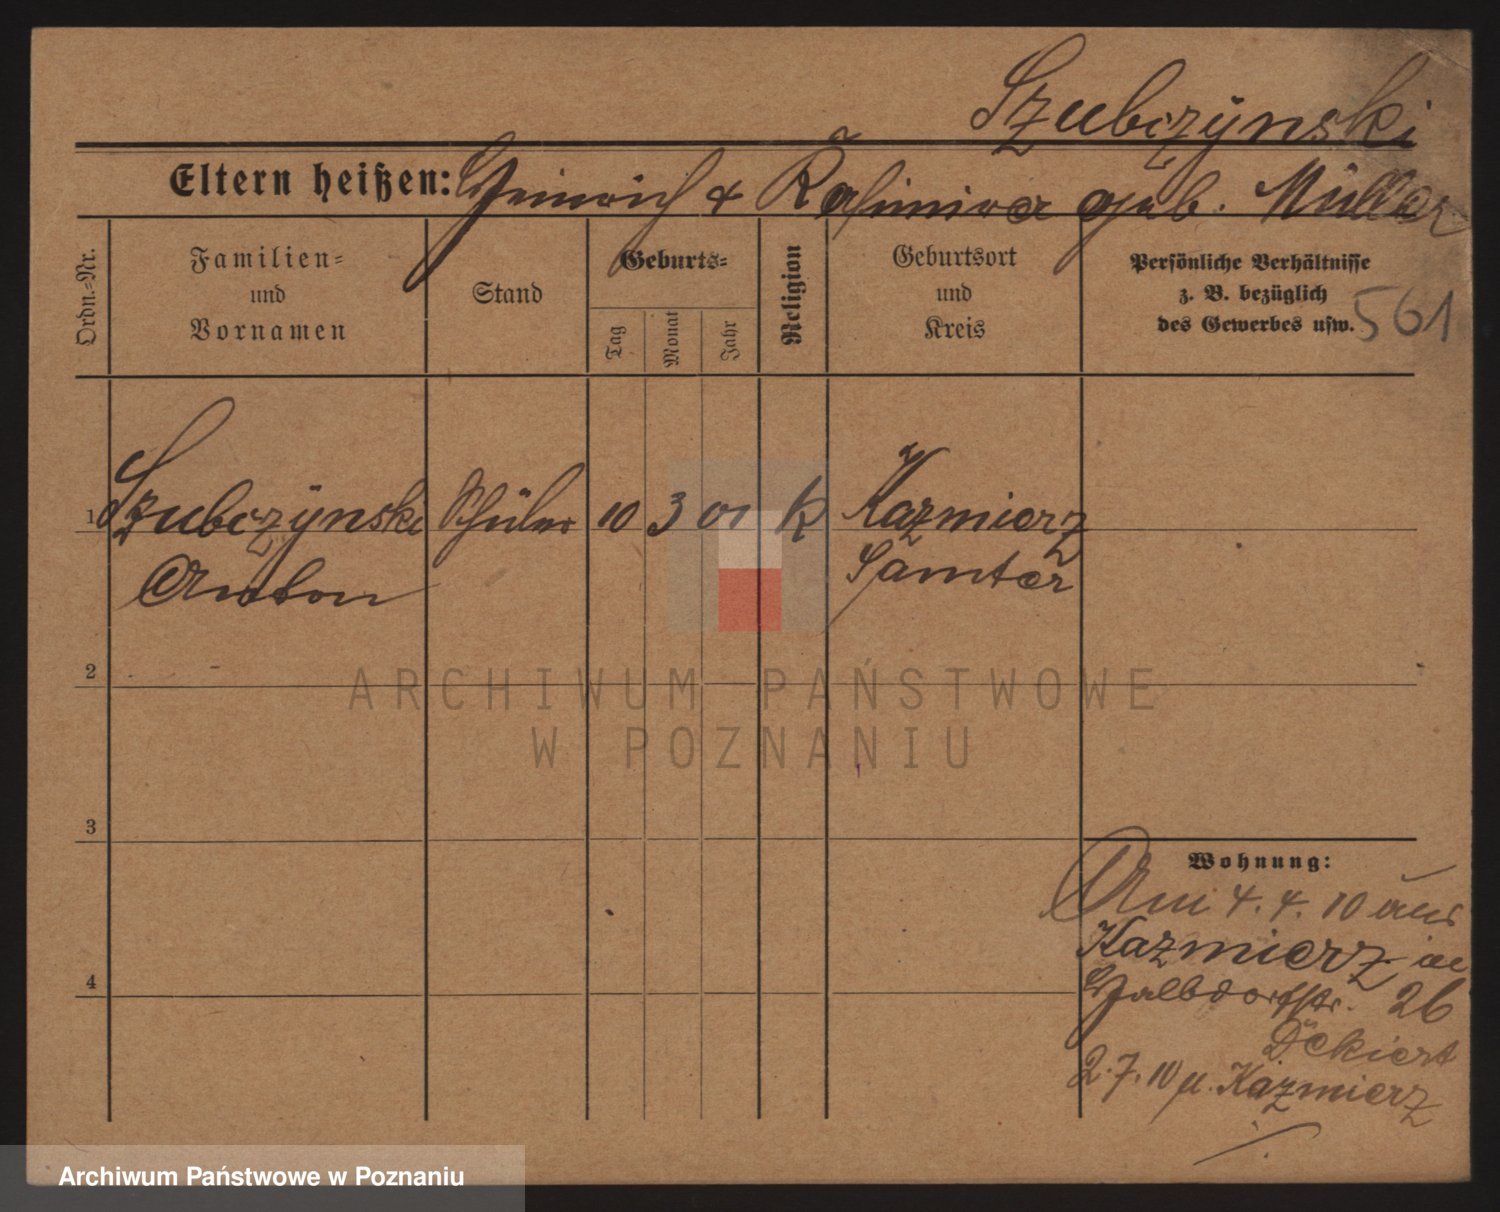 Szubczynski
Eltern heißen: Heinrich & Kasimira geb. Müller
Ordn.-Nr.
Familien-
und
Vornamen
Stand
Geburts-
Tag
Monat
Jahr
Religion
Geburtsort
und
Kreis
Persönliche Verhältnisse
z. B. bezüglich
des Gewerbes usw.
561
1 Szubczynski Schüler 10 3 01 k Kazmierz
Anton Samter
2
3
4
Wohnung:
Am 4. 4. 10 aus
Kazmierz
Halbdorfstr. 26
Dekiert
2. 7. 10 n. Kazmierz
ARCHIWUM PAŃSTWOWE
W POZNANIU
Archiwum Państwowe w Poznaniu